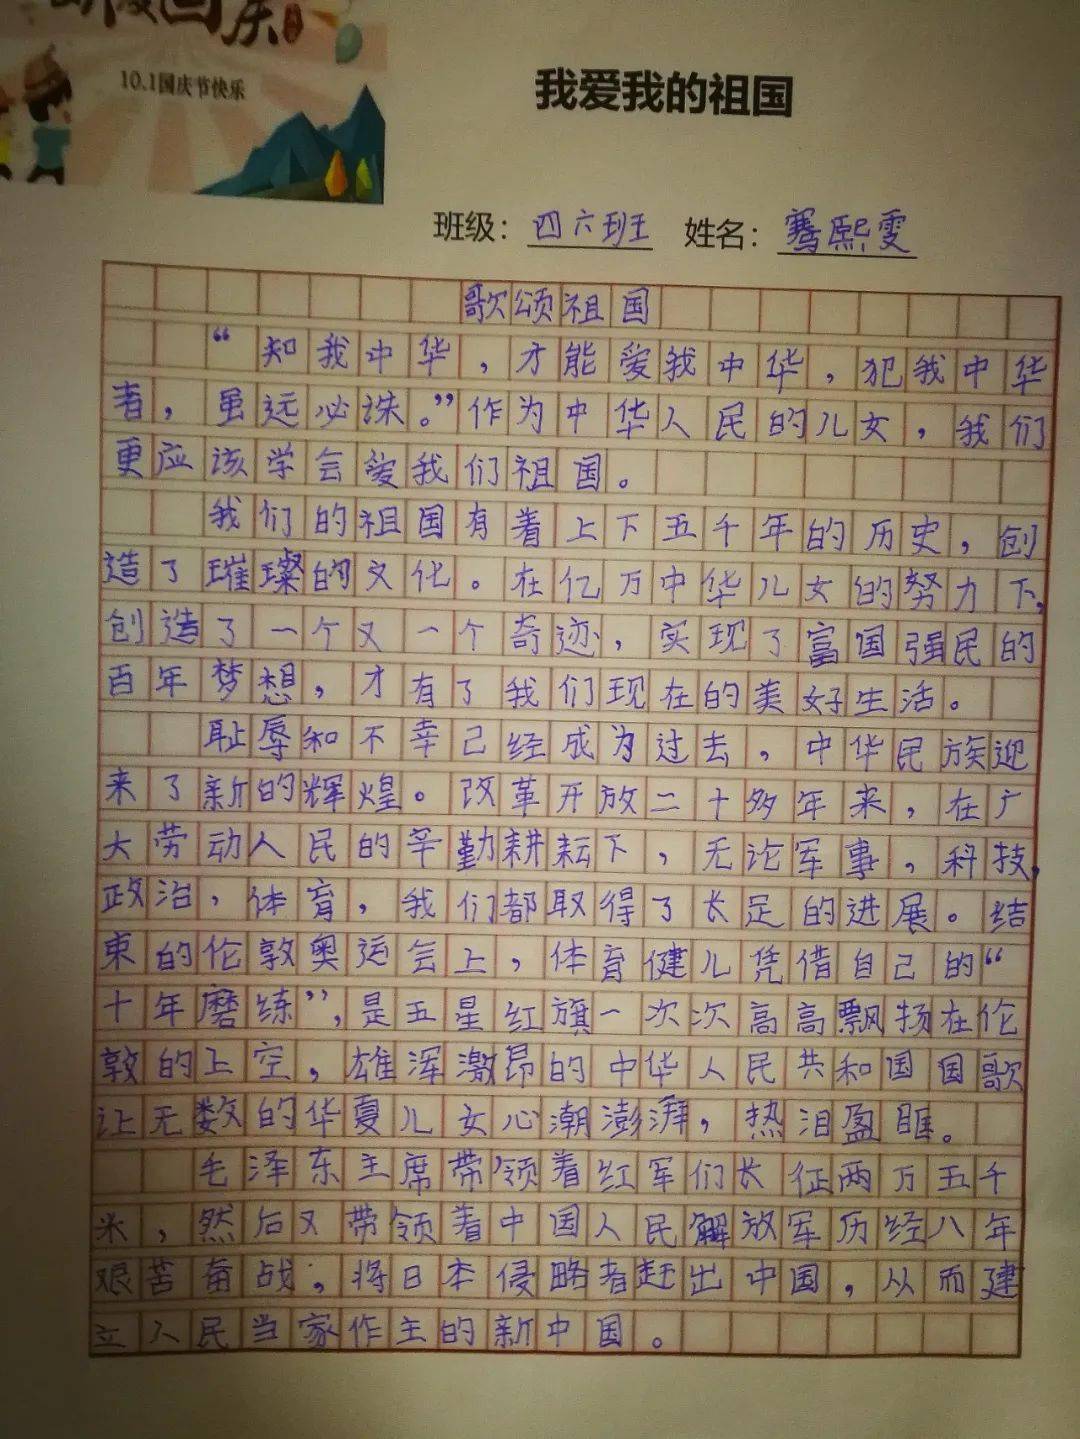 10.1国庆节快乐
我爱我的祖国
班级：四六班 姓名：骞熙雯
歌颂祖国
“知我中华，才能爱我中华，犯我中华
者，虽远必诛。”作为中华人民的儿女，我们
更应该学会爱我们祖国。
我们的祖国有着上下五千年的历史，创
造了璀璨的文化。在亿万中华儿女的努力下，
创造了一个又一个奇迹，实现了富国强民的
百年梦想，才有了我们现在的美好生活。
耻辱和不幸己经成为过去，中华民族迎
来了新的辉煌。改革开放二十多年来，在广
大劳动人民的辛勤耕耘下，无论军事，科技，
政治，体育，我们都取得了长足的进展。结
束的伦敦奥运会上，体育健儿凭借自己的“
十年磨练”，是五星红旗一次次高高飘扬在伦
敦的上空，雄浑激昂的中华人民共和国国歌
让无数的华夏儿女心潮澎湃，热泪盈眶。
毛泽东主席带领着红军们长征两万五千
米，然后又带领着中国人民解放军历经八年
艰苦奋战，将日本侵略者赶出中国，从而建
立人民当家作主的新中国。